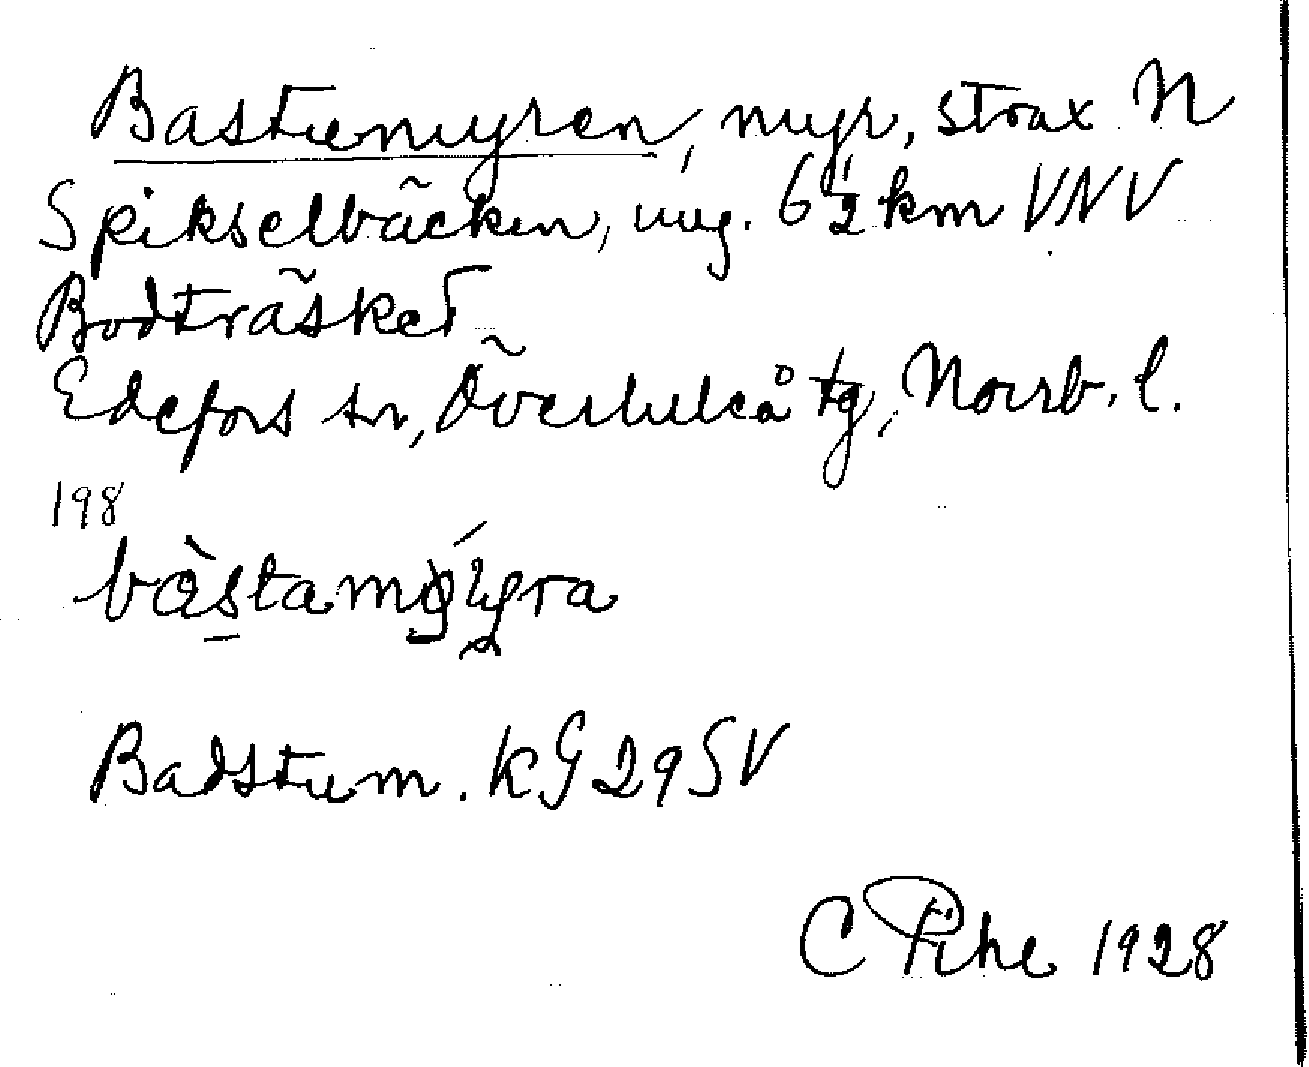 Bastumyren, myr, strax N
Spikselbäcken, ung. 6 1/2 km VNV
Bodträsket
Edefors sn, Överluleå tg, Norrb. l.
198
bàstamýyra
Badstum. kG 29 SV
C Pihl 1928